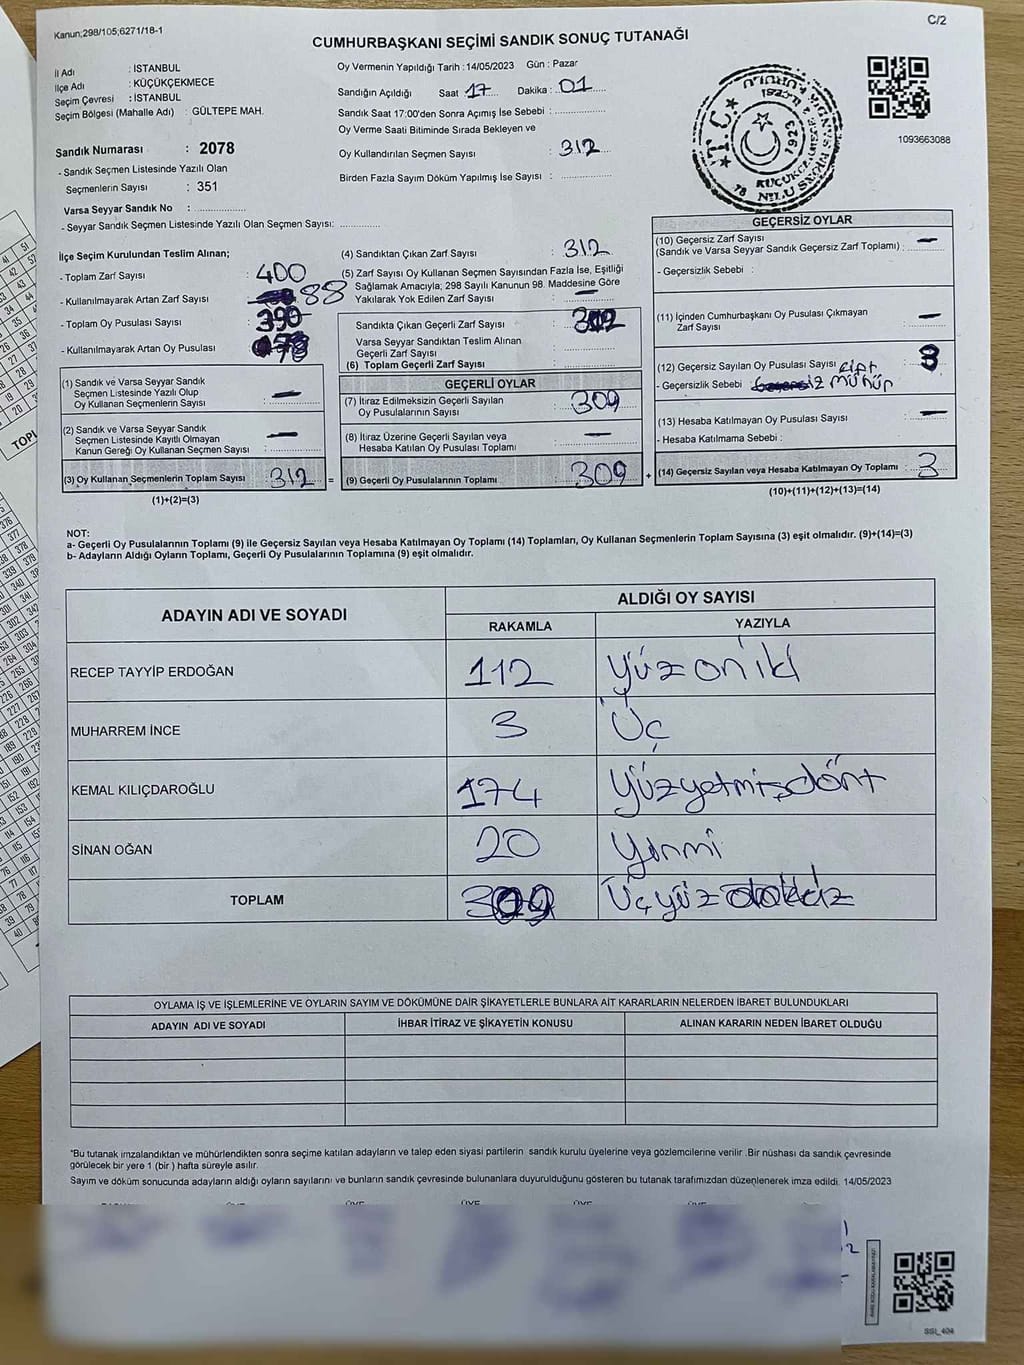 Kanun;298/105;6271/18-1
C/2
CUMHURBAŞKANI SEÇİMİ SANDIK SONUÇ TUTANAĞI
İl Adı : İSTANBUL
İlçe Adı : KÜÇÜKÇEKMECE
Seçim Çevresi : İSTANBUL
Seçim Bölgesi (Mahalle Adı) : GÜLTEPE MAH.
Sandık Numarası : 2078
- Sandık Seçmen Listesinde Yazılı Olan
Seçmenlerin Sayısı : 351
Varsa Seyyar Sandık No : ..................
- Seyyar Sandık Seçmen Listesinde Yazılı Olan Seçmen Sayısı: ..............
Oy Vermenin Yapıldığı Tarih :14/05/2023 Gün : Pazar
Sandığın Açıldığı Saat 17 Dakika : 01
Sandık Saat 17:00'den Sonra Açımış İse Sebebi : ..............
Oy Verme Saati Bitiminde Sırada Bekleyen ve
Oy Kullandırılan Seçmen Sayısı : 312
Birden Fazla Sayım Döküm Yapılmış İse Sayısı : ..............
T.C.
1923
1093663088
İlçe Seçim Kurulundan Teslim Alınan;
- Toplam Zarf Sayısı : 400
- Kullanılmayarak Artan Zarf Sayısı 88
- Toplam Oy Pusulası Sayısı : 390
- Kullanılmayarak Artan Oy Pusulası : 78
(1) Sandık ve Varsa Seyyar Sandık
Seçmen Listesinde Yazılı Olup
Oy Kullanan Seçmenlerin Sayısı : —
(2) Sandık ve Varsa Seyyar Sandık
Seçmen Listesinde Kayıtlı Olmayan
Kanun Gereği Oy Kullanan Seçmen Sayısı : —
(3) Oy Kullanan Seçmenlerin Toplam Sayısı : 312 =
(1)+(2)=(3)
(4) Sandıktan Çıkan Zarf Sayısı : 312
(5) Zarf Sayısı Oy Kullanan Seçmen Sayısından Fazla İse, Eşitliği
Sağlamak Amacıyla; 298 Sayılı Kanunun 98. Maddesine Göre
Yakılarak Yok Edilen Zarf Sayısı : —
Sandıkta Çıkan Geçerli Zarf Sayısı : 312
Varsa Seyyar Sandıktan Teslim Alınan
Geçerli Zarf Sayısı
(6) Toplam Geçerli Zarf Sayısı :
GEÇERLİ OYLAR
(7) İtiraz Edilmeksizin Geçerli Sayılan
Oy Pusulalarının Sayısı : 309
(8) İtiraz Üzerine Geçerli Sayılan veya
Hesaba Katılan Oy Pusulası Toplamı : —
(9) Geçerli Oy Pusulalarının Toplamı : 309 +
GEÇERSİZ OYLAR
(10) Geçersiz Zarf Sayısı
(Sandık ve Varsa Seyyar Sandık Geçersiz Zarf Toplamı) : —
- Geçersizlik Sebebi :
(11) İçinden Cumhurbaşkanı Oy Pusulası Çıkmayan
Zarf Sayısı : —
(12) Geçersiz Sayılan Oy Pusulası Sayısı : 3
- Geçersizlik Sebebi çift mühür
(13) Hesaba Katılmayan Oy Pusulası Sayısı : —
- Hesaba Katılmama Sebebi :
(14) Geçersiz Sayılan veya Hesaba Katılmayan Oy Toplamı : 3
(10)+(11)+(12)+(13)=(14)
NOT:
a- Geçerli Oy Pusulalarının Toplamı (9) ile Geçersiz Sayılan veya Hesaba Katılmayan Oy Toplamı (14) Toplamları, Oy Kullanan Seçmenlerin Toplam Sayısına (3) eşit olmalıdır. (9)+(14)=(3)
b- Adayların Aldığı Oyların Toplamı, Geçerli Oy Pusulalarının Toplamına (9) eşit olmalıdır.
ADAYIN ADI VE SOYADI
ALDIĞI OY SAYISI
RAKAMLA YAZIYLA
RECEP TAYYİP ERDOĞAN 112 Yüz on iki
MUHARREM İNCE 3 Üç
KEMAL KILIÇDAROĞLU 174 Yüzyetmişdört
SİNAN OĞAN 20 Yirmi
TOPLAM 309 Üçyüz dokuz
OYLAMA İŞ VE İŞLEMLERİNE VE OYLARIN SAYIM VE DÖKÜMÜNE DAİR ŞİKAYETLERLE BUNLARA AİT KARARLARIN NELERDEN İBARET BULUNDUKLARI
ADAYIN ADI VE SOYADI İHBAR İTİRAZ VE ŞİKAYETİN KONUSU ALINAN KARARIN NEDEN İBARET OLDUĞU
"Bu tutanak imzalandıktan ve mühürlendikten sonra seçime katılan adayların ve talep eden siyasi partilerin sandık kurulu üyelerine veya gözlemcilerine verilir .Bir nüshası da sandık çevresinde
görülecek bir yere 1 (bir ) hafta süreyle asılır.
Sayım ve döküm sonucunda adayların aldığı oyların sayılarını ve bunların sandık çevresinde bulunanlara duyurulduğunu gösteren bu tutanak tarafımızdan düzenlenerek imza edildi. 14/05/2023
SSI_404